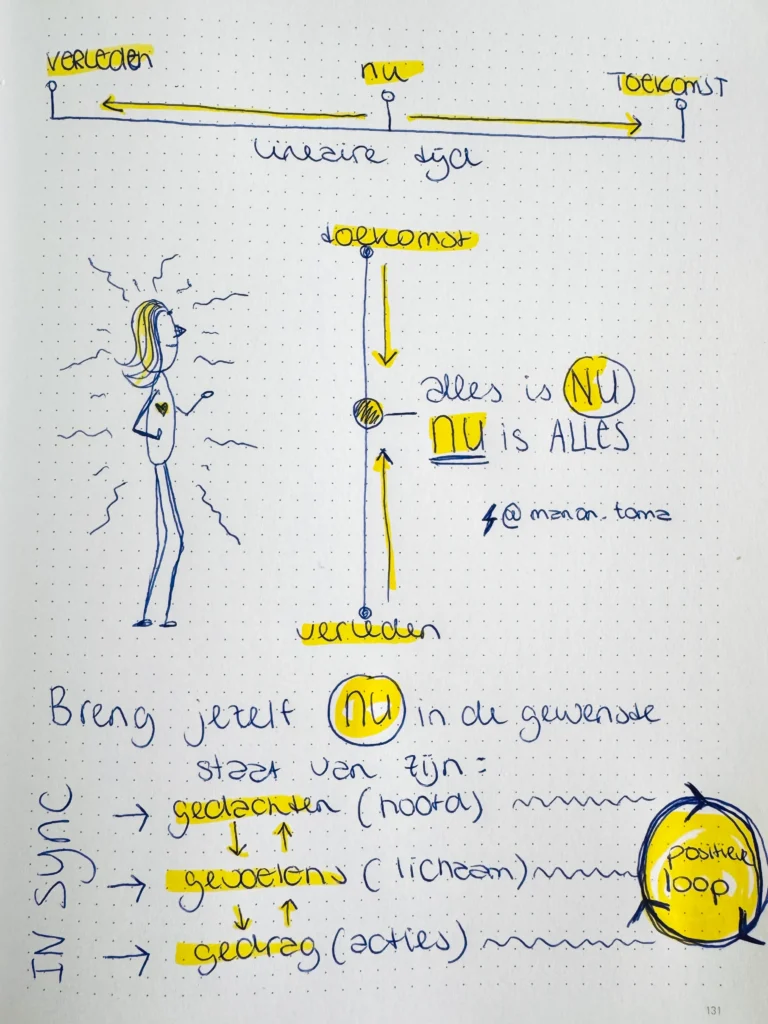 VERLEDEN
nu
TOEKOMST
lineaire tijd
toekomst
alles is NU
NU is ALLES
@manon.toma
verleden
Breng jezelf NU in de gewenste
staat van zijn:
IN SYNC
→ gedachten (hoofd)
→ gevoelens (lichaam)
→ gedrag (acties)
positieve
loop
131